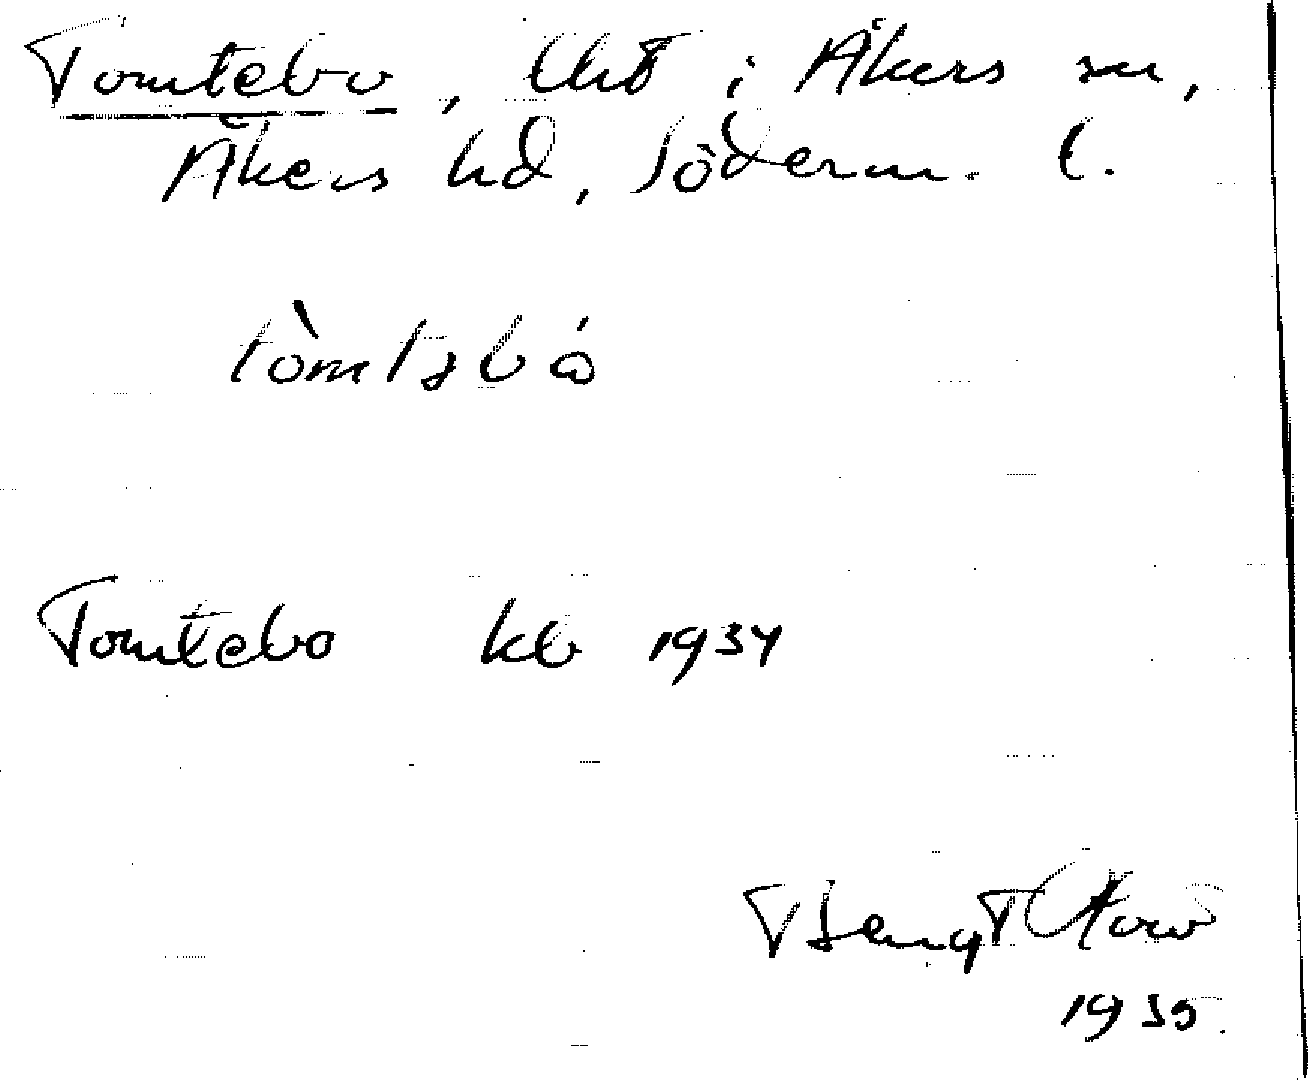 Tomtebo, i Åkers sn,
Åkers hd, Söderm. l.
tòmtəbó
Tomtebo kb 1934
Bengt
1935.